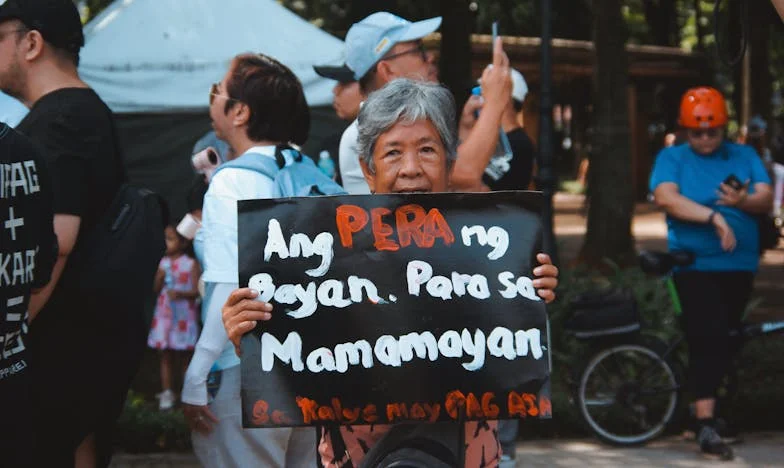 Ang PERA ng
Bayan. Para sa
Mamamayan.
Sa Kalye may PAG ASA
PAG
+